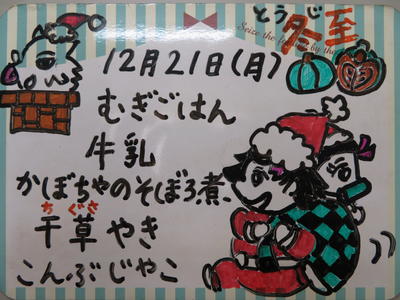 とうじ
冬至
Seize the
by the
12月21日(月)
むぎごはん
牛乳
かぼちゃのそぼろ煮
ちぐさ
千草やき
こんぶじゃこ